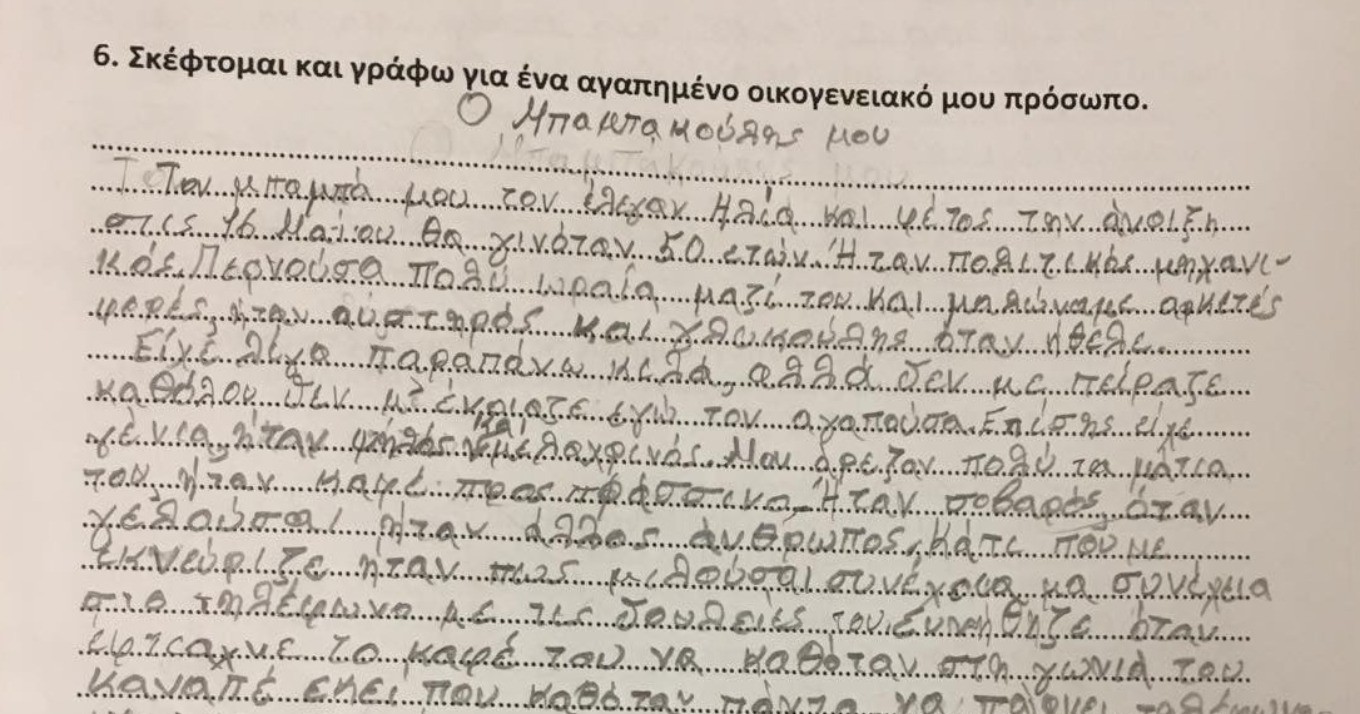 6. Σκέφτομαι και γράφω για ένα αγαπημένο οικογενειακό μου πρόσωπο.
Ο Μπαμπακούλης μου
Τον μπαμπά μου τον έλεγαν Ηλία και φέτος την άνοιξη
στις 16 Μαΐου θα γινόταν 50 ετών. Ήταν πολιτικός μηχανι-
κός. Περνούσα πολύ ωραία μαζί του και μαλώναμε αρκετές
φορές, ήταν αυστηρός και γλυκούλης όταν ήθελε.
Είχε λίγα παραπάνω κιλά, αλλά δεν με πείραζε
καθόλου δεν μ' ένοιαζε εγώ τον αγαπούσα. Επίσης είχε
γένια, ήταν ψηλός και μελαχρινός. Μου άρεζαν πολύ τα μάτια
του, ήταν καφέ προς πράσινο. Ήταν σοβαρός, όταν
γελούσαι ήταν άλλος άνθρωπος. Κάτι που με
εκνεύριζε ήταν πως μιλούσαι συνέχεια μα συνέχεια
στο τηλέφωνο με τις δουλειές του. Συνήθηζε όταν
έφτιαχνε το καφέ του να καθόταν στη γωνιά του
καναπέ εκεί που καθόταν πάντα να παίρνει